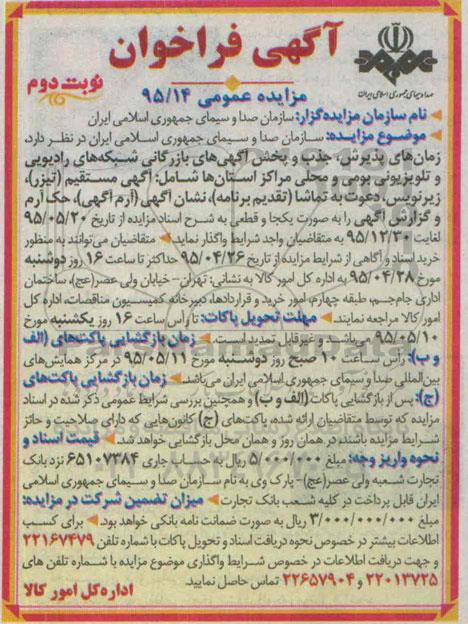 آگهی فراخوان
صدا و سیمای جمهوری اسلامی ایران
نوبت دوم
مزایده عمومی ۹۵/۱۴
نام سازمان مزایده‌گزار: سازمان صدا و سیمای جمهوری اسلامی ایران
موضوع مزایده: سازمان صدا و سیمای جمهوری اسلامی ایران در نظر دارد،
زمان‌های پذیرش، جذب و پخش آگهی‌های بازرگانی شبکه‌های رادیویی
و تلویزیونی بومی و محلی مراکز استان‌ها شامل: آگهی مستقیم (تیزر)،
زیرنویس، دعوت به تماشا (تقدیم برنامه)، نشان آگهی (آرم آگهی)، حک آرم
و گزارش آگهی را به صورت یکجا و قطعی به شرح اسناد مزایده از تاریخ ۹۵/۰۵/۲۰
لغایت ۹۵/۱۲/۳۰ به متقاضیان واجد شرایط واگذار نماید. متقاضیان می‌توانند به منظور
خرید اسناد و آگاهی از شرایط مزایده از تاریخ ۹۵/۰۴/۲۶ حداکثر تا ساعت ۱۶ روز دوشنبه
مورخ ۹۵/۰۴/۲۸ به اداره کل امور کالا به نشانی: تهران - خیابان ولی عصر(عج)، ساختمان
اداری جام‌جم، طبقه چهارم، امور خرید و قراردادها، دبیرخانه کمیسیون مناقصات، اداره کل
امور کالا مراجعه نمایند. مهلت تحویل پاکات: تا رأس ساعت ۱۶ روز یکشنبه مورخ
۹۵/۰۵/۱۰ می‌باشد و غیرقابل تمدید است. زمان بازگشایی پاکت‌های (الف
و ب): رأس ساعت ۱۰ صبح روز دوشنبه مورخ ۹۵/۰۵/۱۱ در مرکز همایش‌های
بین‌المللی صدا و سیمای جمهوری اسلامی ایران می‌باشد. زمان بازگشایی پاکت‌های
(ج): پس از بازگشایی پاکات (الف و ب) و همچنین بررسی شرایط عمومی ذکر شده در اسناد
مزایده که توسط متقاضیان ارائه شده، پاکت‌های (ج) کانون‌هایی که دارای صلاحیت و حائز
شرایط مزایده باشند، در همان روز و همان محل بازگشایی خواهد شد. قیمت اسناد و
نحوه واریز وجه: مبلغ ۵/۰۰۰/۰۰۰ ریال به حساب جاری ۶۵۱۰۷۳۸۴ نزد بانک
تجارت شعبه ولی عصر(عج)- پارک وی به نام سازمان صدا و سیمای جمهوری اسلامی
ایران قابل پرداخت در کلیه شعب بانک تجارت میزان تضمین شرکت در مزایده:
مبلغ ۳/۰۰۰/۰۰۰/۰۰۰ ریال به صورت ضمانت نامه بانکی خواهد بود. برای کسب
اطلاعات بیشتر در خصوص نحوه دریافت اسناد و تحویل پاکات با شماره تلفن ۲۲۱۶۷۴۷۹
و جهت دریافت اطلاعات در خصوص شرایط واگذاری موضوع مزایده با شماره تلفن های
۲۲۰۱۳۷۲۵ و ۲۲۶۵۷۹۰۴ تماس حاصل نمایید.
اداره کل امور کالا